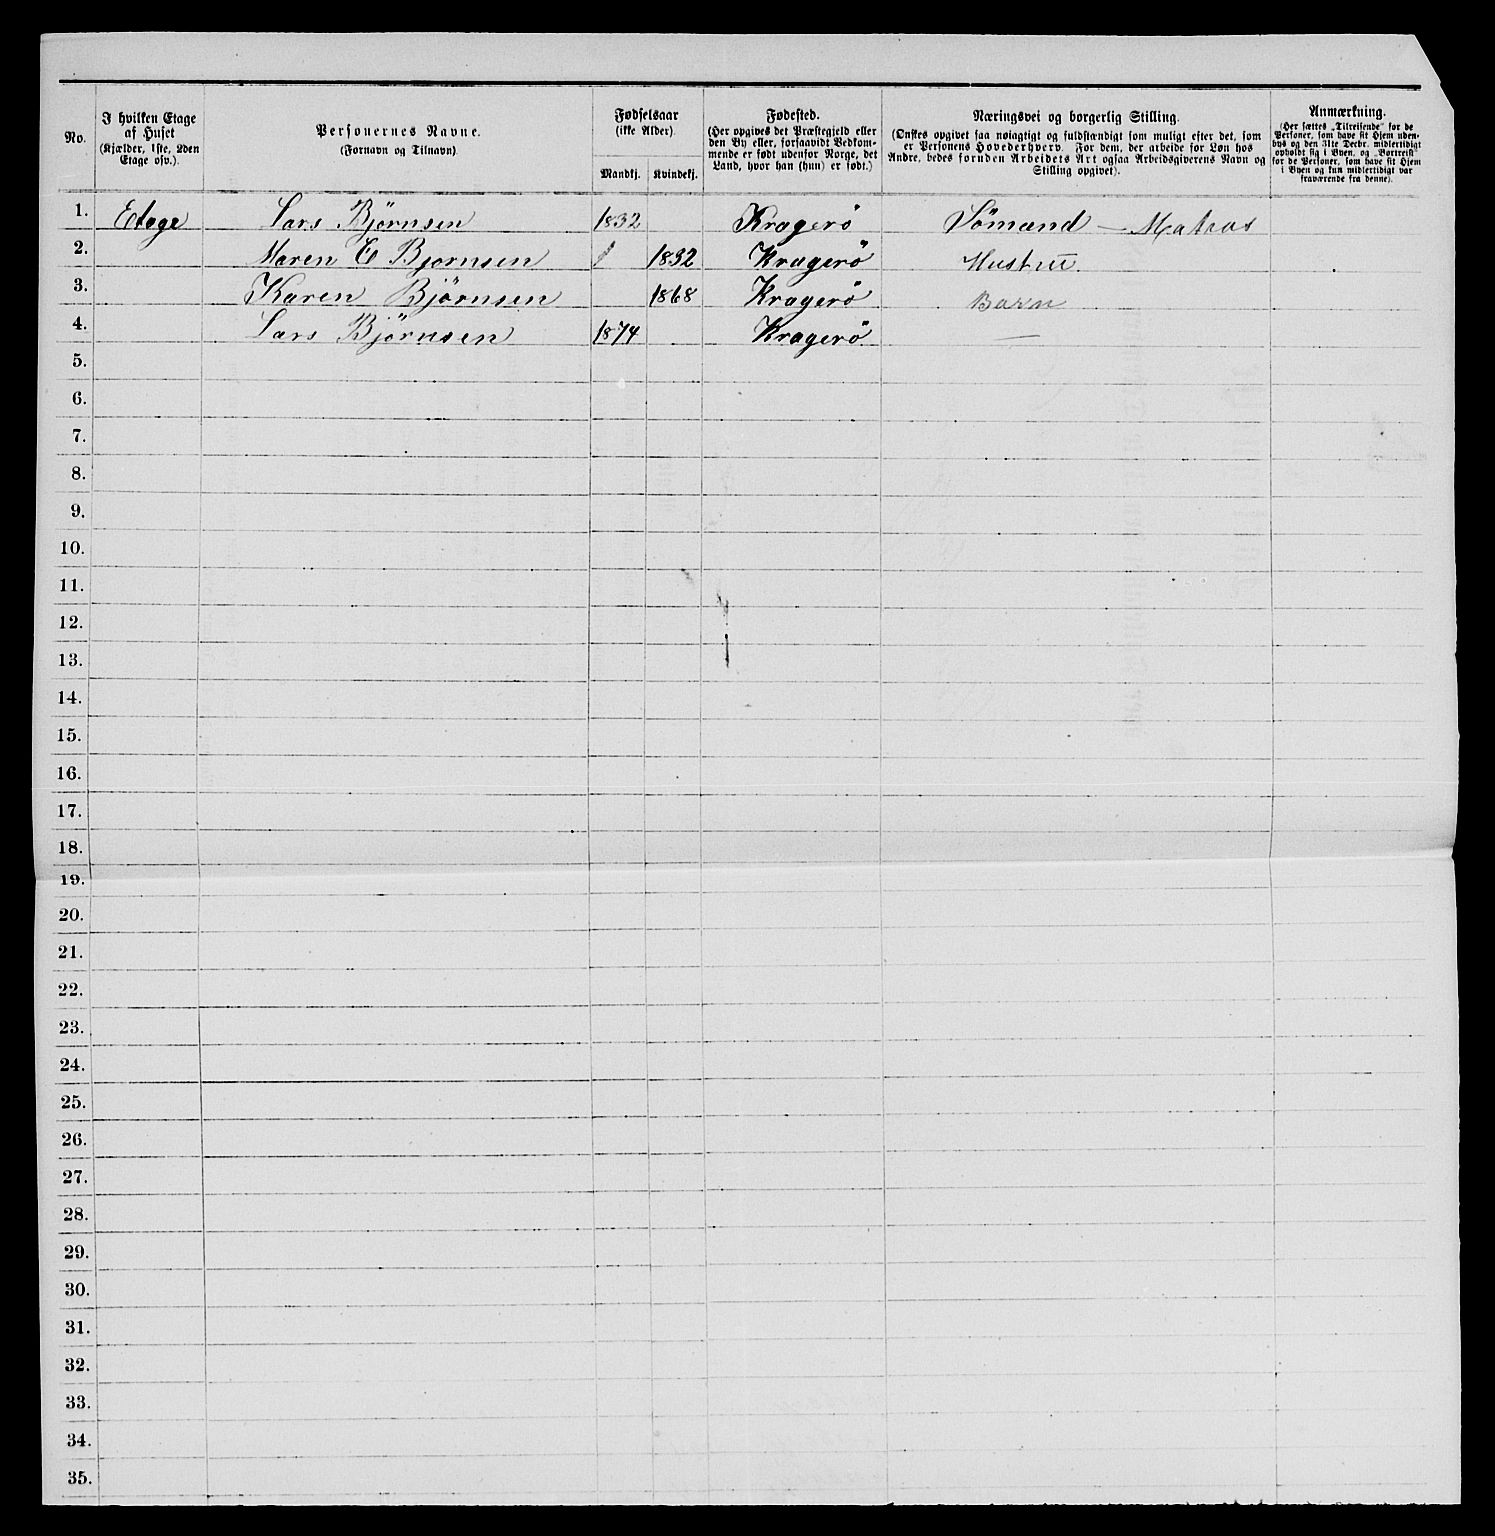 No.
I hvilken Etage
af Huset
(Kjælder, 1ste, 2den
Etage osv.).
Personernes Navne.
(Fornavn og Tilnavn)
Fødselsaar
(ikke Alder).
Mandkj.
Kvindekj.
Fødested.
(Her opgives det Præstegjeld eller
den By eller, forsaavidt Vedkom-
mende er født udenfor Norge, det
Land, hvor han (hun) er født.)
Næringsvei og borgerlig Stilling.
(Ønskes opgivet saa nøiagtigt og fuldstændigt som muligt efter det, som
er Personens Hovederhverv. For dem, der arbeide for Løn hos
Andre, bedes foruden Arbeidets Art ogsaa Arbeidsgiverens Navn og
Stilling opgivet).
Anmærkning.
(Her sættes „Tilreisende“ for de
Personer, som have sit Hjem uden-
bys og den 31te Decbr. midlertidigt
opholdt sig i Byen, og „Bortreist“
for de Personer, som have sit Hjem
i Byen og kun midlertidigt var
fraværende fra denne).
1. Etage Lars Björnsen 1832 Kragerö Sömand — Matros
2. Maren E Bjornsen 1832 Kragerö Hustru
3. Karen Björnsen 1868 Kragerö Barn
4. Lars Björnsen 1874 Kragerö —
5.
6.
7.
8.
9.
10.
11.
12.
13.
14.
15.
16.
17.
18.
19.
20.
21.
22.
23.
24.
25.
26.
27.
28.
29.
30.
31.
32.
33.
34.
35.